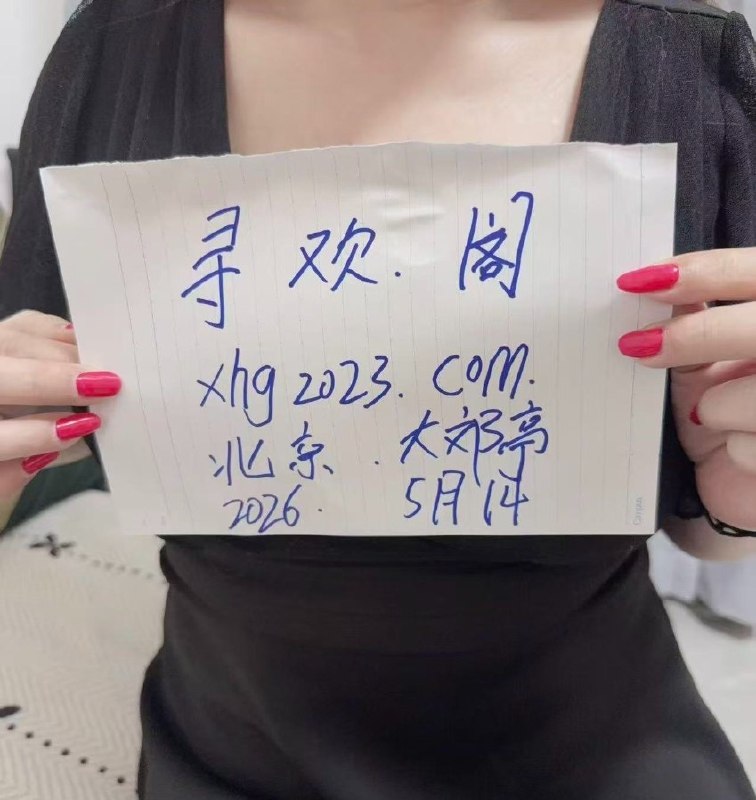 寻欢.阁
xhg2023.com.
北京.大郊亭
2026. 5月14